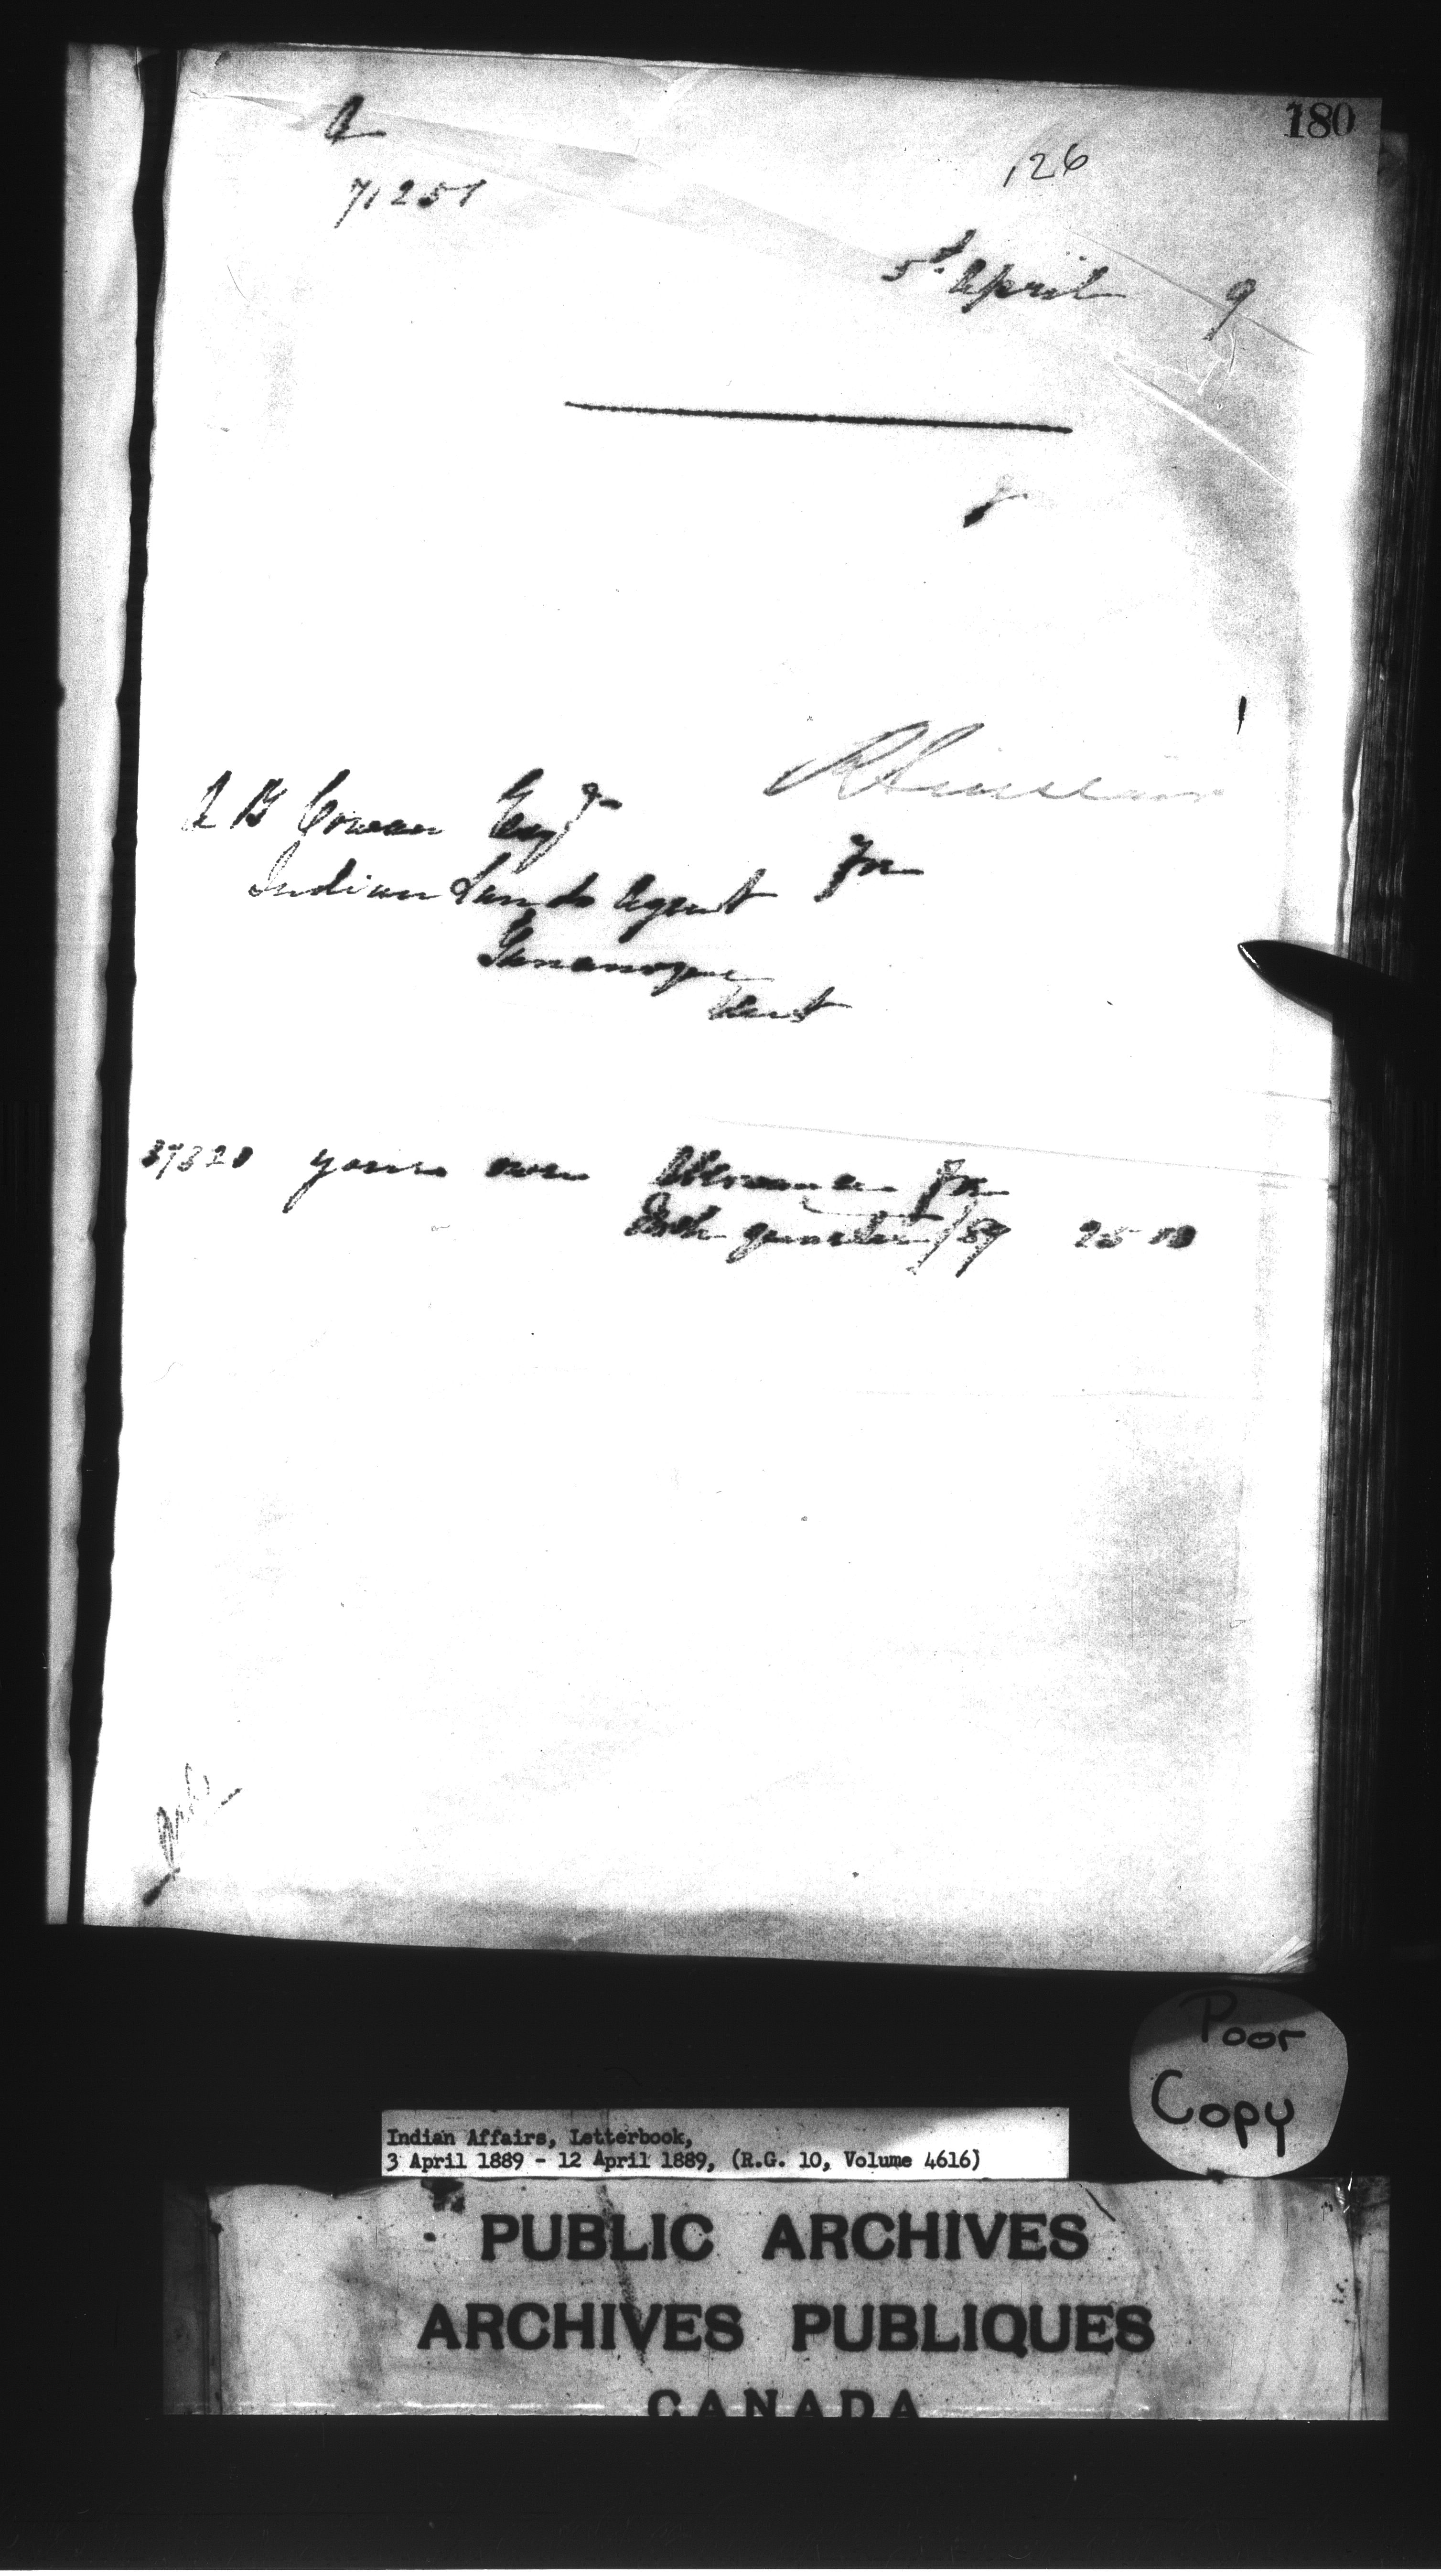 180
126
71251
5th April 9
R Sinclair
A B Cowan Esqr
Indian Lands Agent
for
Gananoque
Ont
37320 yours own Allowance for
quarter /89 25 00
Poor
Copy
Indian Affairs, Letterbook,
3 April 1889 - 12 April 1889, (R.G. 10, Volume 4616)
PUBLIC ARCHIVES
ARCHIVES PUBLIQUES
CANADA